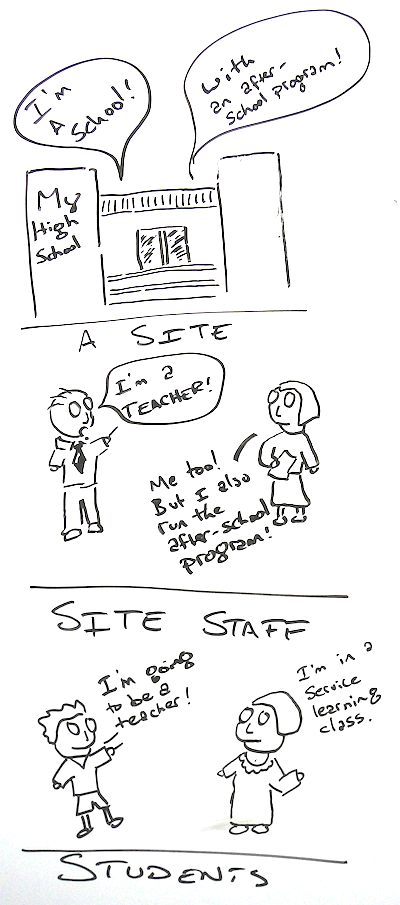 I'm
A
School!
with
an after-
School program!
My
High
School
A SITE
I'm a
TEACHER!
Me too!
But I also
run the
after-school
program!
SITE STAFF
I'm going
to be a
teacher!
I'm in a
Service
learning
class.
STUDENTS